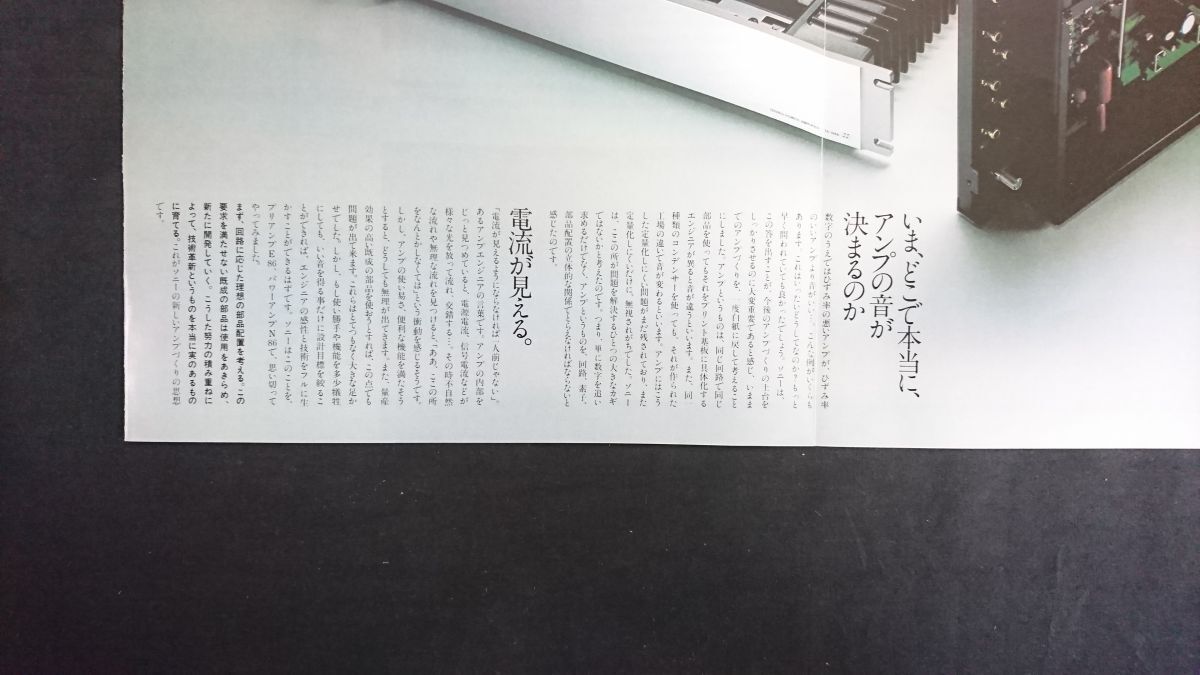 いま、どこで本当に、
アンプの音が
決まるのか
数字のうえではひずみ率の悪いアンプが、ひずみ率
のいいアンプより音がいい…。こんな例がいくらも
あります。これはいったいどうしてなのか?もっと
早く問われていても良かったでしょう。ソニーは、
この答を出すことが、今後のアンプづくりの土台を
しっかりさせるのに大変重要であると感じ、いまま
でのアンプづくりを、一度白紙に戻して考えること
にしました。アンプというものは、同じ回路で同じ
部品を使ってもそれをプリント基板に具体化する
エンジニアが異ると音が違うといいます。また、同一
種類のコンデンサーを使っても、それが作られた
工場の違いで音が変わるといいます。アンプにはこう
した定量化しにくい問題がまだ残されており、また
定量化しにくいだけに、無視されがちでした。ソニー
は、ここの所が問題を解決するひとつの大きなカギ
ではないかと考えたのです。つまり、単に数字を追い
求めるだけでなく、アンプというものを、回路、素子、
部品配置の立体的な関係でとらえなければならないと
感じたのです。
電流が見える。
「電流が見えるようにならなければ一人前じゃない」。
あるアンプエンジニアの言葉です。アンプの内部を
じっと見つめていると、電源電流、信号電流などが
様々な光を放って流れ、交錯する…。その時不自然
な流れや無理な流れを見つけると、「ああ、ここの所
をなんとかしなくては」という衝動を感じるそうです。
しかし、アンプの使い易さ、便利な機能を満たそう
とすると、どうしても無理が出てきます。また、量産
効果の高い既成の部品を使おうとすれば、この点でも
問題が出て来ます。これらはとてつもなく大きな足か
せでした。しかし、もし使い勝手や機能を多少犠牲
にしても、いい音を得る事だけに設計目標を絞るこ
とができれば、エンジニアの感性と技術をフルに生
かすことができるはずです。ソニーはこのことを、
プリアンプE86、パワーアンプN86で、思い切って
やってみました。
まず、回路に応じた理想の部品配置を考える。この
要求を満たせない既成の部品は使用をあきらめ、
新たに開発していく。こうした努力の積み重ねに
よって、技術革新というものを本当に実のあるもの
に育てる。これがソニーの新しいアンプづくりの思想
です。